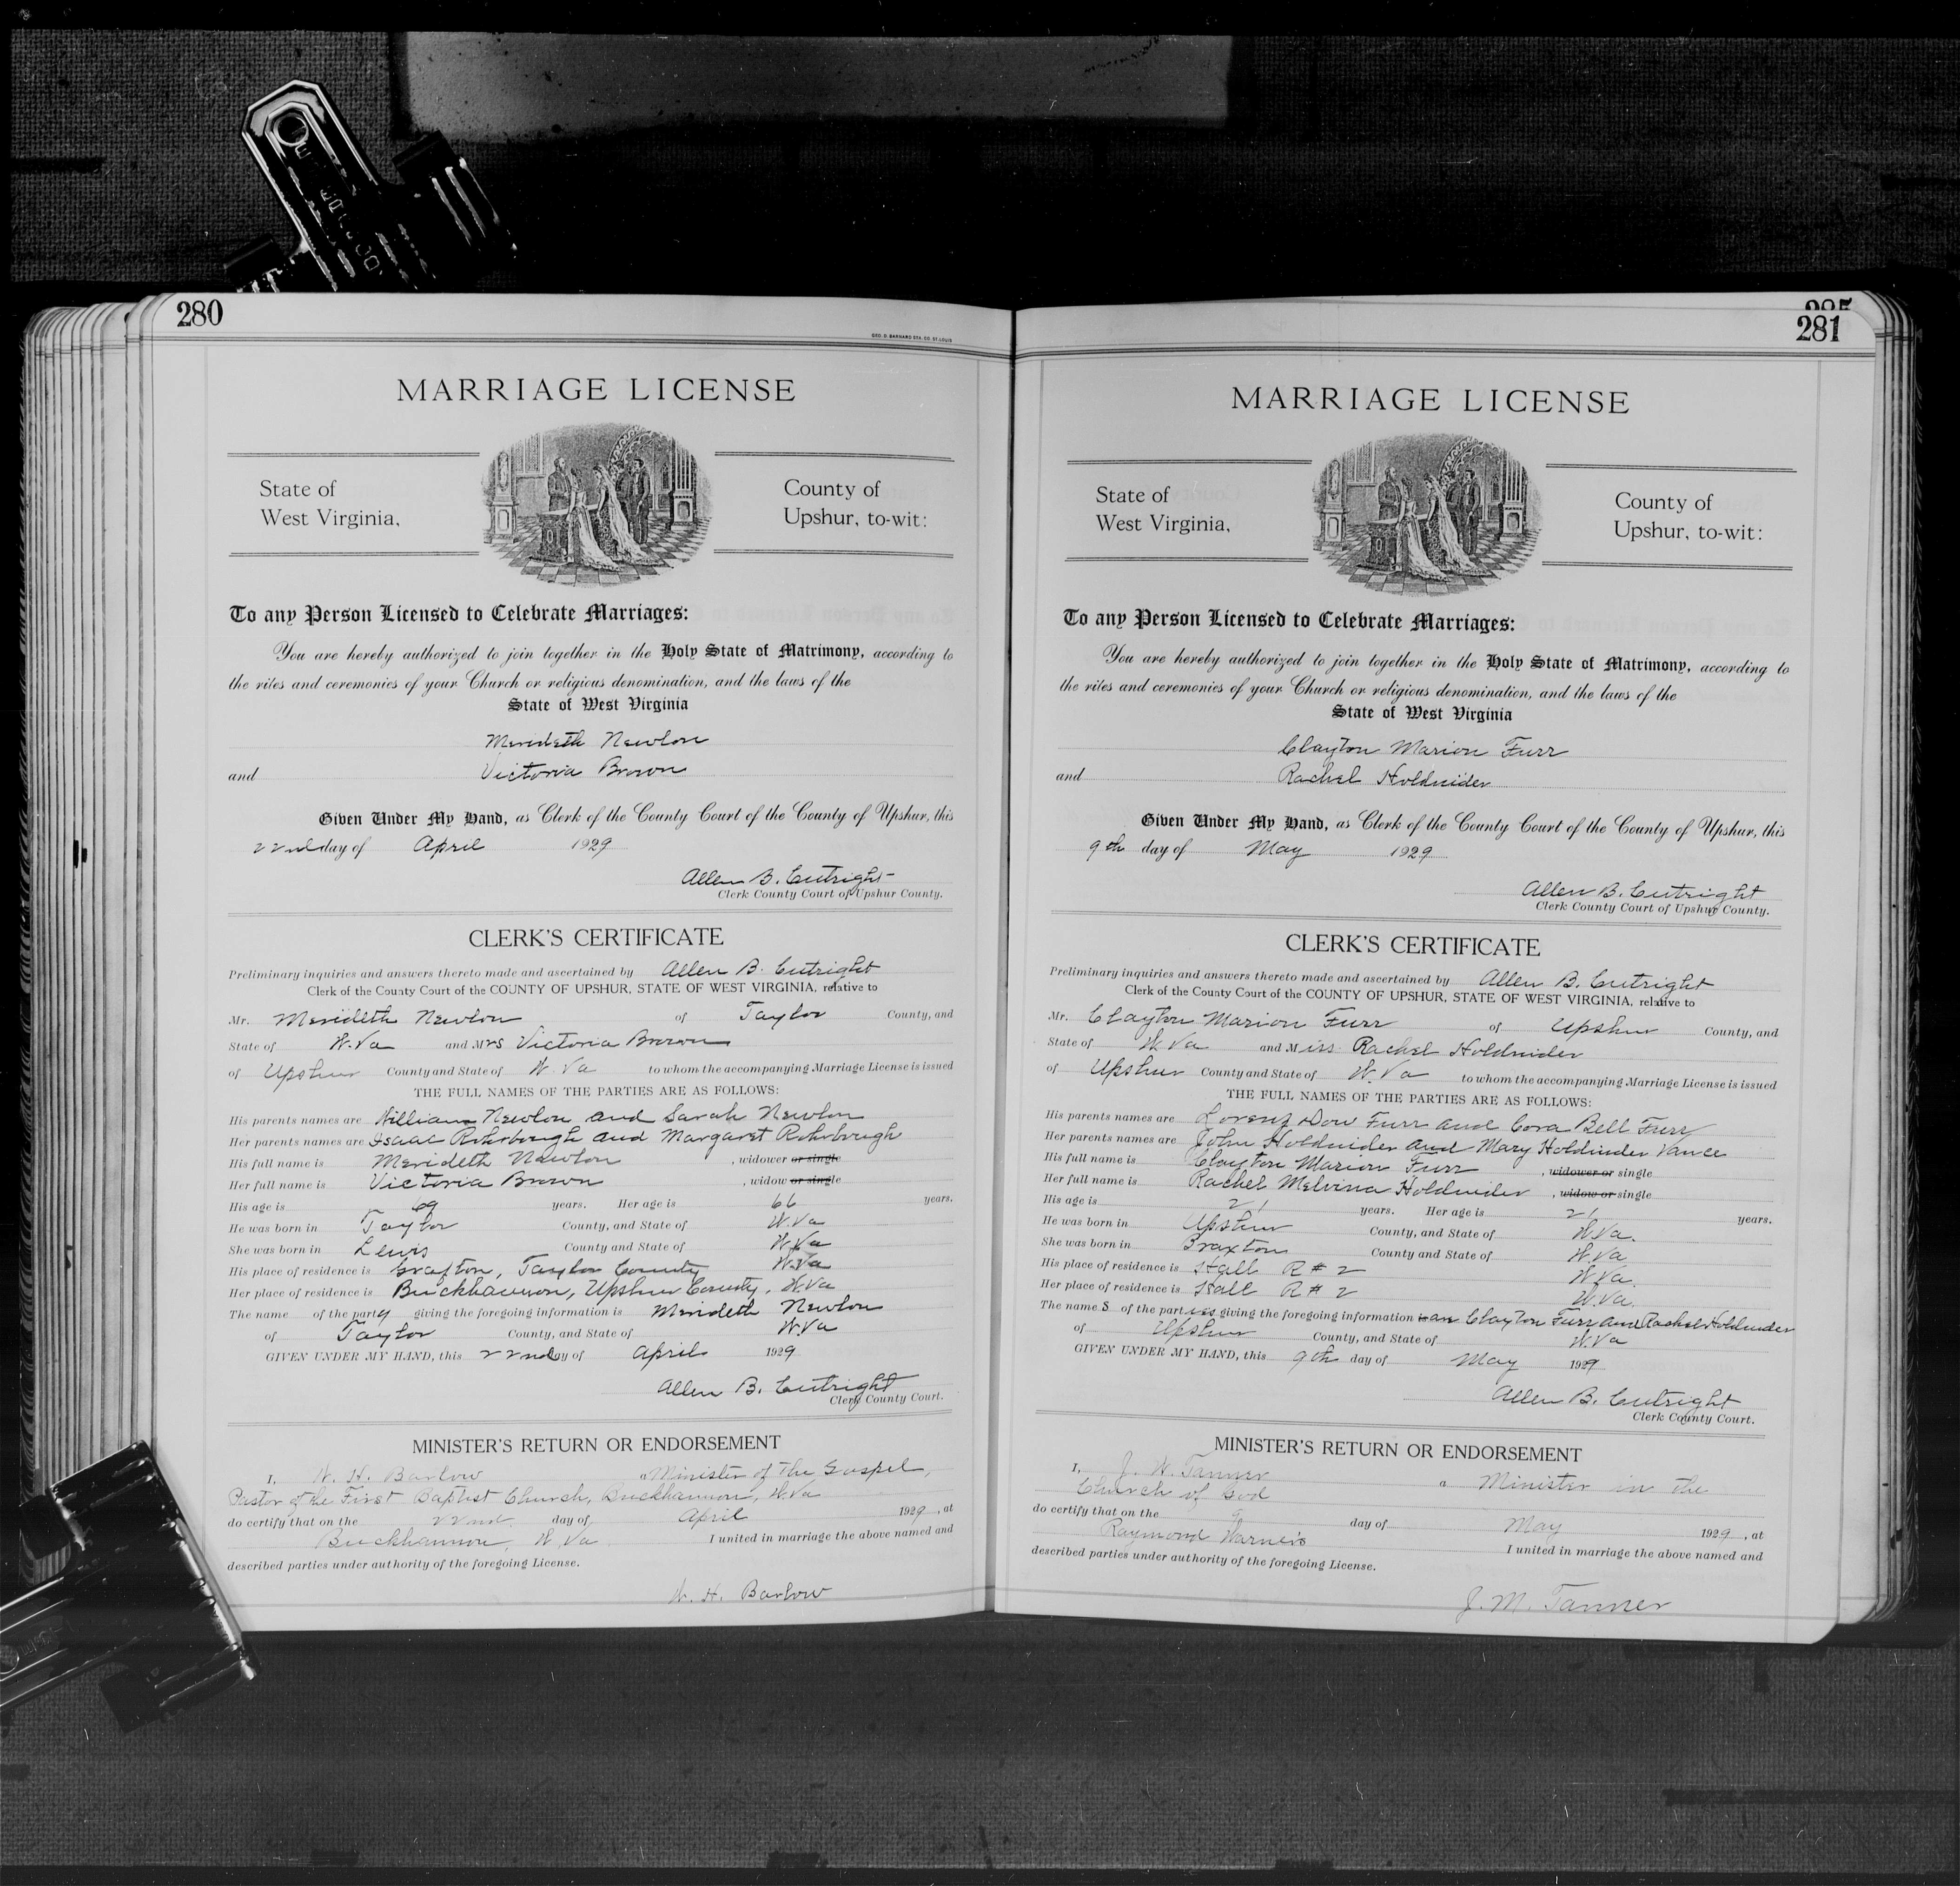 280
GEO. D. BARNARD STA. CO. ST. LOUIS
MARRIAGE LICENSE
State of
West Virginia,
County of
Upshur, to-wit:
To any Person Licensed to Celebrate Marriages:
You are hereby authorized to join together in the Holy State of Matrimony, according to
the rites and ceremonies of your Church or religious denomination, and the laws of the
State of West Virginia
Merideth Newlon
and Victoria Brown
Given Under My Hand, as Clerk of the County Court of the County of Upshur, this
22nd day of April 1929
Allen B. Cutright
Clerk County Court of Upshur County.
CLERK'S CERTIFICATE
Preliminary inquiries and answers thereto made and ascertained by Allen B. Cutright
Clerk of the County Court of the COUNTY OF UPSHUR, STATE OF WEST VIRGINIA, relative to
Mr. Merideth Newlon of Taylor County, and
State of W.Va and Mrs Victoria Brown
of Upshur County and State of W. Va to whom the accompanying Marriage License is issued
THE FULL NAMES OF THE PARTIES ARE AS FOLLOWS:
His parents names are William Newlon and Sarah Newlon
Her parents names are Isaac Rohrbough and Margaret Rohrbough
His full name is Merideth Newlon , widower or single
Her full name is Victoria Brown , widow or single
His age is 69 years. Her age is 66 years.
He was born in Taylor County, and State of W.Va
She was born in Lewis County and State of W.Va
His place of residence is Grafton, Taylor County W.Va
Her place of residence is Buckhannon, Upshur County, W.Va
The name of the party giving the foregoing information is Merideth Newlon
of Taylor County, and State of W.Va
GIVEN UNDER MY HAND, this 22nd day of April 1929
Allen B. Cutright
Clerk County Court.
MINISTER'S RETURN OR ENDORSEMENT
I, W. H. Barlow a Minister of the Gospel,
Pastor of the First Baptist Church, Buckhannon, W.Va
do certify that on the 22nd day of April 1929, at
Buckhannon, W.Va I united in marriage the above named and
described parties under authority of the foregoing License.
W. H. Barlow
285
281
MARRIAGE LICENSE
State of
West Virginia,
County of
Upshur, to-wit:
To any Person Licensed to Celebrate Marriages:
You are hereby authorized to join together in the Holy State of Matrimony, according to
the rites and ceremonies of your Church or religious denomination, and the laws of the
State of West Virginia
Clayton Marion Furr
and Rachel Holdnider
Given Under My Hand, as Clerk of the County Court of the County of Upshur, this
9th day of May 1929
Allen B. Cutright
Clerk County Court of Upshur County.
CLERK'S CERTIFICATE
Preliminary inquiries and answers thereto made and ascertained by Allen B. Cutright
Clerk of the County Court of the COUNTY OF UPSHUR, STATE OF WEST VIRGINIA, relative to
Mr. Clayton Marion Furr of Upshur County, and
State of W. Va and Miss Rachel Holdnider
of Upshur County and State of W. Va to whom the accompanying Marriage License is issued
THE FULL NAMES OF THE PARTIES ARE AS FOLLOWS:
His parents names are Lorenz Dow Furr and Cora Bell Furr
Her parents names are John Holdnider and Mary Holdnider Vance
His full name is Clayton Marion Furr , widower or single
Her full name is Rachel Melvina Holdnider , widow or single
His age is 21 years. Her age is 21 years.
He was born in Upshur County, and State of W.Va.
She was born in Braxton County and State of W.Va
His place of residence is Hall R#2 W.Va.
Her place of residence is Hall R#2 W.Va.
The names of the parties giving the foregoing information is are Clayton Furr and Rachel Holdnider
of Upshur County, and State of W.Va
GIVEN UNDER MY HAND, this 9th day of May 1929
Allen B. Cutright
Clerk County Court.
MINISTER'S RETURN OR ENDORSEMENT
I, J. W. Tanner a Minister in the
Church of God
do certify that on the 9 day of May 1929, at
Raymond Warner's I united in marriage the above named and
described parties under authority of the foregoing License.
J. M. Tanner